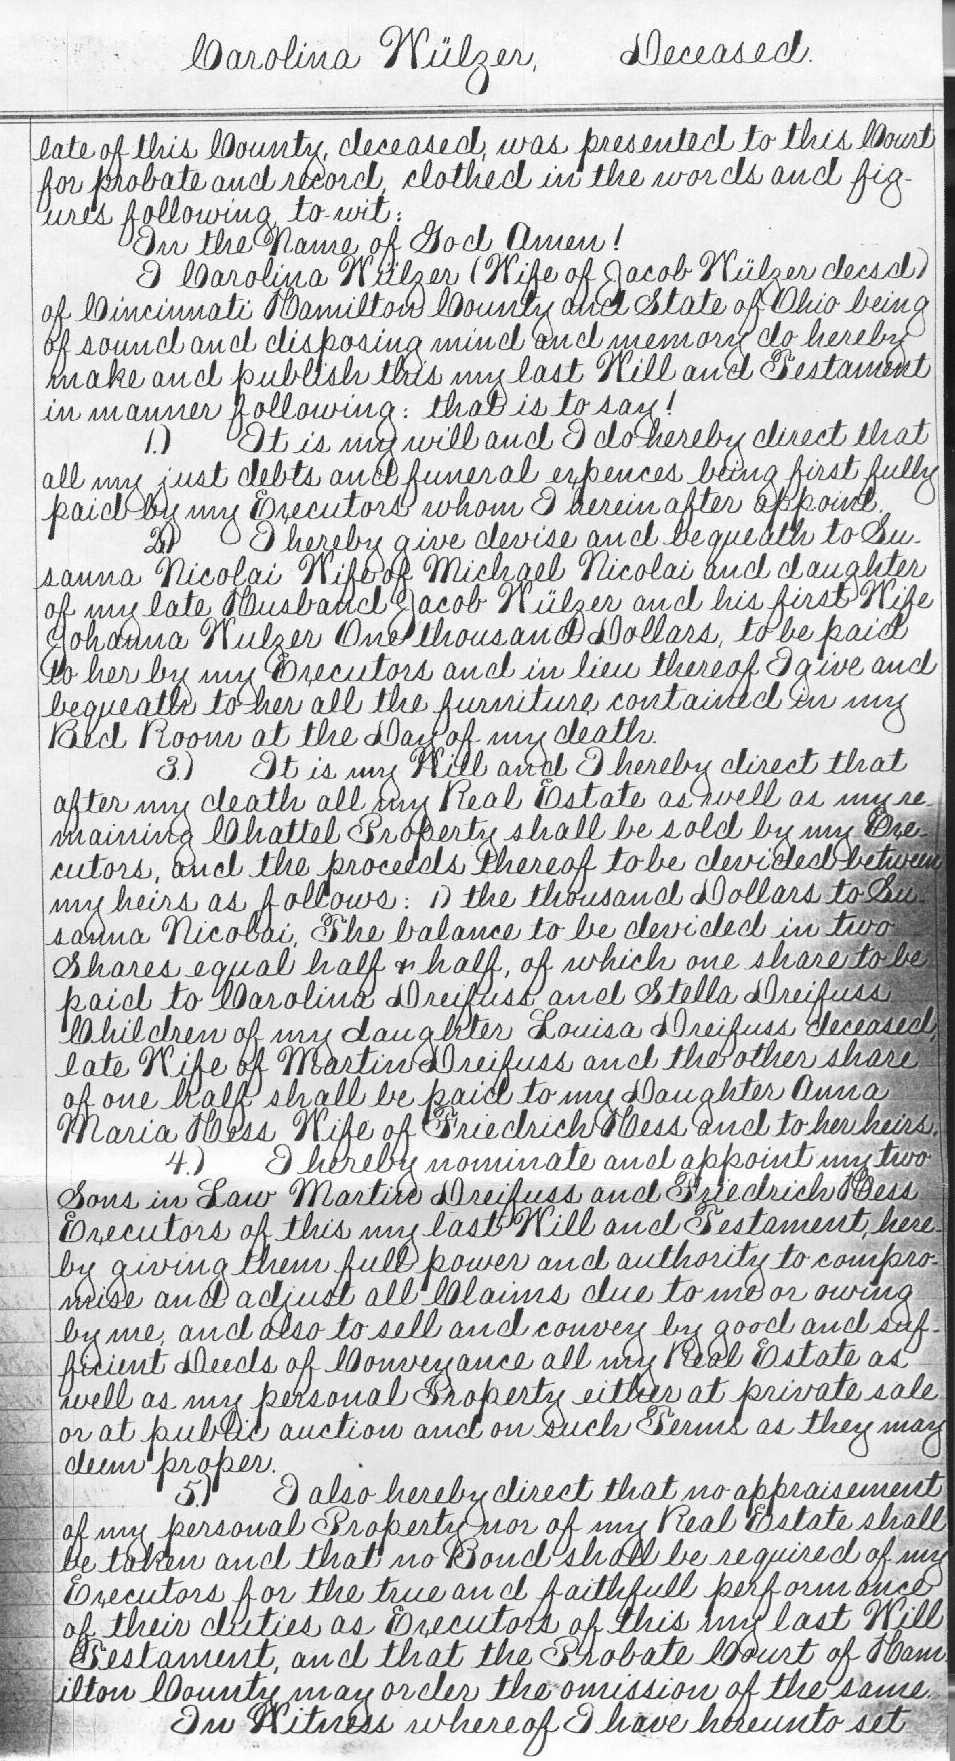 Carolina Wülzer, Deceased.
late of this County, deceased, was presented to this Court
for probate and record, clothed in the words and fig-
ures following, to-wit:
In the Name of God Amen!
I Carolina Wülzer (Wife of Jacob Wülzer decsd)
of Cincinnati Hamilton County and State of Ohio being
of sound and disposing mind and memory do hereby
make and publish this my last Will and Testament
in manner following: that is to say!
1.) It is my will and I do hereby direct that
all my just debts and funeral expences being first fully
paid by my Executors whom I herein after appoint.
2.) I hereby give devise and bequeath to Su-
sanna Nicolai Wife of Michael Nicolai and daughter
of my late Husband Jacob Wülzer and his first Wife
Johanna Wulzer One thousand Dollars, to be paid
to her by my Executors and in lieu thereof I give and
bequeath to her all the furniture contained in my
Bed Room at the Day of my death.
3.) It is my Will and I hereby direct that
after my death all my Real Estate as well as my re-
maining Chattel Property shall be sold by my Exe-
cutors, and the proceeds thereof to be devided between
my heirs as follows: 1) the thousand Dollars to Su-
sanna Nicolai, The balance to be devided in two
Shares equal half & half, of which one share to be
paid to Carolina Dreifuss and Stella Dreifuss
Children of my daughter Louisa Dreifuss deceased,
late Wife of Martin Dreifuss and the other share
of one half shall be paid to my Daughter Anna
Maria Hess Wife of Friedrich Hess and to her heirs.
4.) I hereby nominate and appoint my two
Sons in Law Martin Dreifuss and Friedrich Hess
Executors of this my last Will and Testament, here-
by giving them full power and authority to compro-
mise and adjust all Claims due to me or owing
by me, and also to sell and convey by good and suf-
ficient Deeds of Conveyance all my Real Estate as
well as my personal Property either at private sale
or at public auction and on such Terms as they may
deem proper.
5.) I also hereby direct that no appraisement
of my personal Property nor of my Real Estate shall
be taken and that no Bond shall be required of my
Executors for the true and faithfull performance
of their duties as Executors of this my last Will
Testament, and that the Probate Court of Ham-
ilton County may order the omission of the same.
In Witness whereof I have hereunto set